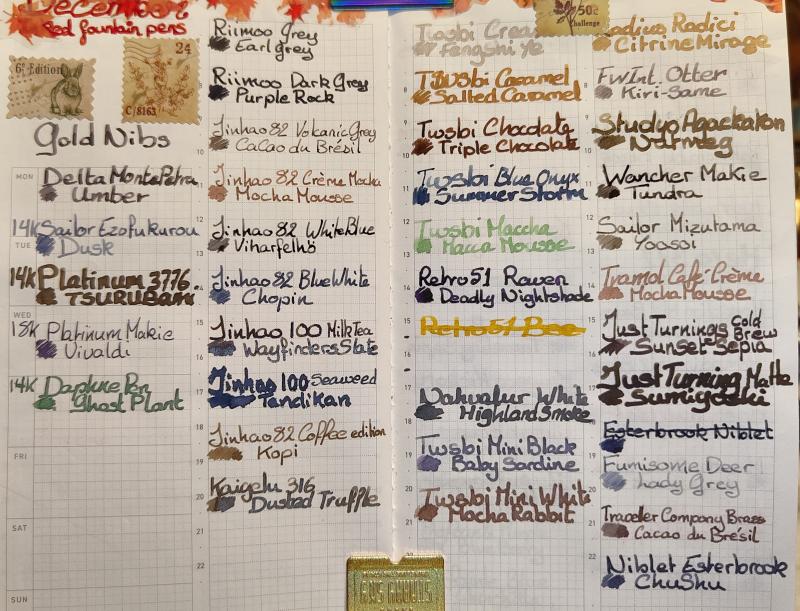 December
Red fountain pens
6º Edition
24
C 8163
Gold Nibs
MON
Delta MontePetra
Umber
14K Sailor Ezofukurou
TUE
Dusk
14K Platinum 3776
TSURUBAMI
WED
18K Platinum Makie
Vivaldi
14K Daphne Pen
Ghost Plant
FRI
SAT
SUN
Riimoo Grey
Earl grey
Riimoo Dark Grey
Purple Rock
Jinhao 82 Volcanic Grey
CaCao du Brésil
Jinhao 82 Crème Mocha
Mocha Mousse
Jinhao 82 White Blue
Viharfelhö
Jinhao 82 Blue White
Chopin
Jinhao 100 Milk Tea
Wayfinders Slate
Jinhao 100 Seaweed
Tandikan
Jinhao 82 Coffee edition
Kopi
Kaigelu 316
Dusted Truffle
10
11
12
13
14
15
16
17
18
19
20
21
22
50¢
Challenge
Twsbi Cream
Fengshi Ye
Twsbi Caramel
Salted Caramel
Twsbi Chocolate
Triple Chocolate
Twsbi Blue Onyx
Summer Storm
Twsbi Maccha
Macca Mousse
Retro 51 Raven
Deadly Nightshade
Retro 51 Bee
Nahvalur White
Highland Smoke
Twsbi Mini Black
Baby Sardine
Twsbi Mini White
Mocha Rabbit
Radius Radici
Citrine Mirage
FW Int. Otter
Kiri-Same
Studyo Apackakon
Nutmeg
Wancher Makie
Tundra
Sailor Mizutama
Yoosoi
Tramol Café-Crème
Mocha Mousse
Just Turnings Cold Brew
Sunset Sepia
Just Turning Matte
Sumiyoshi
Esterbrook Niblet
Fumisome Deer
Lady Grey
Traveler Company Brass
Cacao du Brésil
Niblet Esterbrook
ChuShu